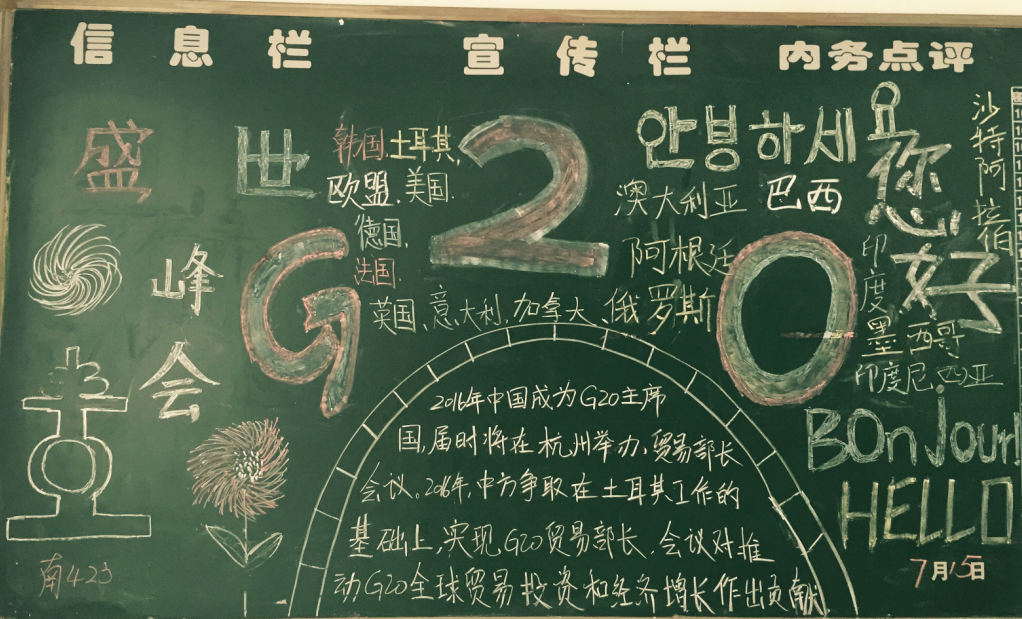 信息栏 宣传栏 内务点评
盛世
峰会
G20
韩国、土耳其、
欧盟、美国、
德国、
法国、
英国、意大利、加拿大、俄罗斯
안녕하세요
澳大利亚 巴西
阿根廷
您好
沙特阿拉伯
印度
墨西哥
印度尼西亚
BOnjour!
HELLO
2016年中国成为G20主席
国,届时将在杭州举办,贸易部长
会议。2016年,中方争取在土耳其工作的
基础上,实现G20贸易部长会议对推
动G20全球贸易投资和经济增长作出贡献.
南423
7月15日